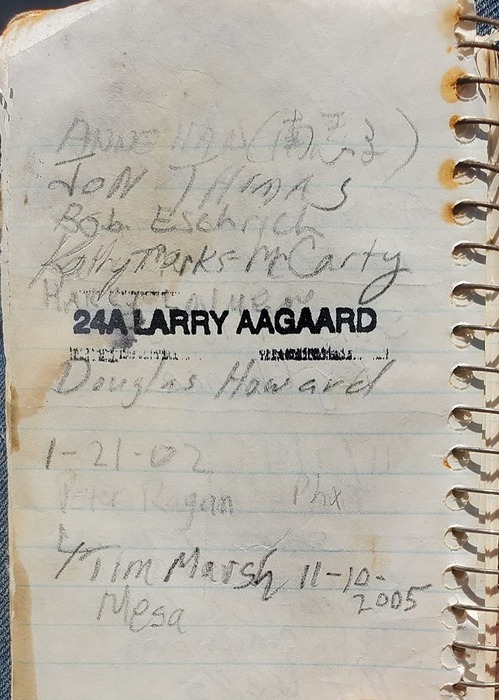 ANNE HAN
JON THOMAS
Bob Eschrich
Kathy Marks-McCarty
24A LARRY AAGAARD
Douglas Howard
1-21-02
Peter Ragan Phx
Tim Marsh 11-10-
2005
Mesa